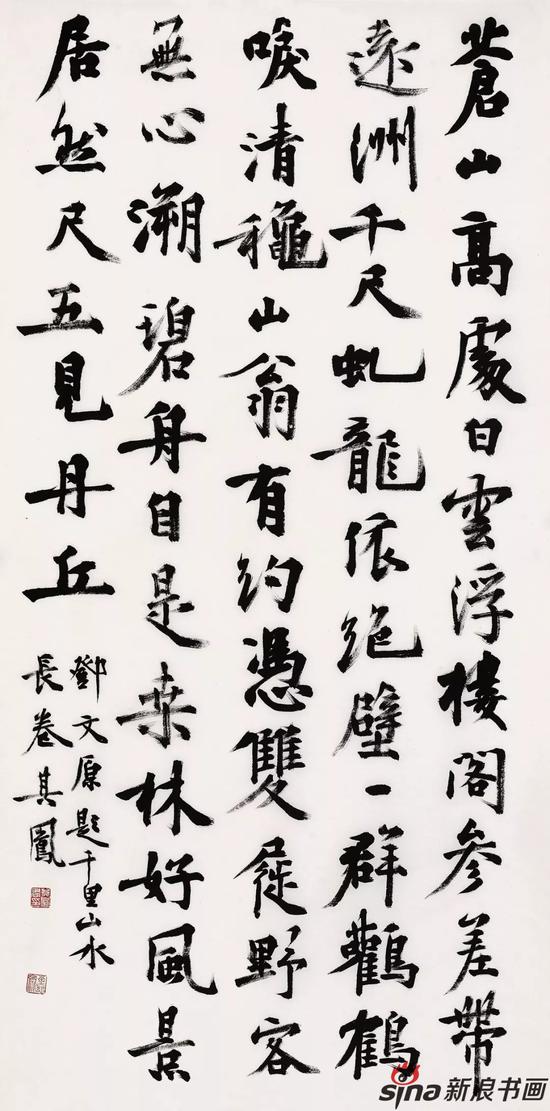 蒼山高處白雲浮樓閣參差帶
遠洲千尺虬龍依絕壁一群鸛鶴
唳清穐山翁有約憑雙屐野客
無心溯碧舟自是桒林好風景
居然尺五見丹丘
鄧文原題千里山水
長卷其鳳
sina新浪书画